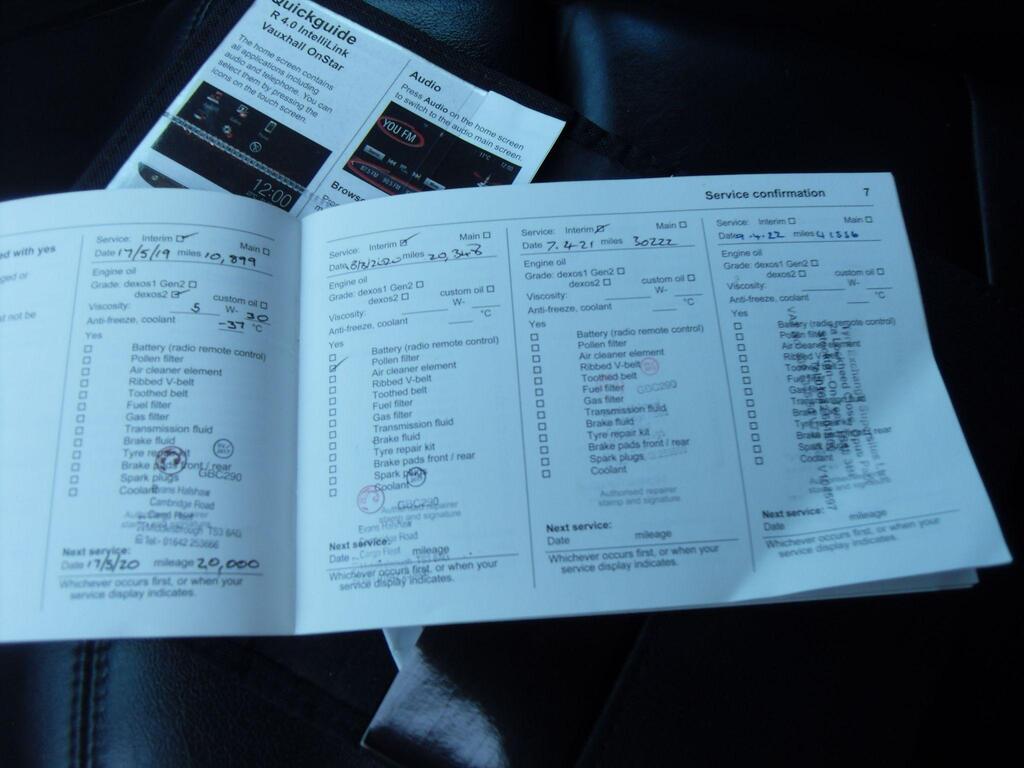 Quickguide
R 4.0 IntelliLink
Vauxhall OnStar
The home screen contains
all applications including
audio and telephone. You can
select them by pressing the
icons on the touch screen.
12:00
Audio
Press Audio on the home screen
to switch to the audio main screen.
YOU FM
Brows
Service confirmation 7
ed with yes
ged or
t not be
Service: Interim Main
Date 17/5/19 miles 10,899
Engine oil
Grade: dexos1 Gen2
dexos2 custom oil
Viscosity: 5 W- 30
Anti-freeze, coolant -37 °C
Yes
Battery (radio remote control)
Pollen filter
Air cleaner element
Ribbed V-belt
Toothed belt
Fuel filter
Gas filter
Transmission fluid
Brake fluid
Tyre repair kit
Brake pads front / rear
Spark plugs
Coolant
GBC290
Evans Halshaw
Cambridge Road
Cargo Fleet
Middlesbrough TS3 8AG
Tel:- 01642 253666
Next service:
Date 17/5/20 mileage 20,000
Whichever occurs first, or when your
service display indicates.
Service: Interim Main
Date miles 20,348
Engine oil
Grade: dexos1 Gen2
dexos2 custom oil
Viscosity: W-
Anti-freeze, coolant °C
Yes
Battery (radio remote control)
Pollen filter
Air cleaner element
Ribbed V-belt
Toothed belt
Fuel filter
Gas filter
Transmission fluid
Brake fluid
Tyre repair kit
Brake pads front / rear
Spark plugs
Coolant
GBC290
Authorised repairer
stamp and signature
Evans Halshaw
Next service:
Date mileage
Whichever occurs first, or when your
service display indicates.
Service: Interim Main
Date 7.4.21 miles 30222
Engine oil
Grade: dexos1 Gen2
dexos2 custom oil
Viscosity: W-
Anti-freeze, coolant °C
Yes
Battery (radio remote control)
Pollen filter
Air cleaner element
Ribbed V-belt
Toothed belt
Fuel filter
Gas filter
Transmission fluid
Brake fluid
Tyre repair kit
Brake pads front / rear
Spark plugs
Coolant
GBC290
Authorised repairer
stamp and signature
Next service:
Date mileage
Whichever occurs first, or when your
service display indicates.
Service: Interim Main
Date 9.4.22 miles
Engine oil
Grade: dexos1 Gen2
dexos2 custom oil
Viscosity: W-
Anti-freeze, coolant °C
Yes
Battery (radio remote control)
Pollen filter
Air cleaner element
Ribbed V-belt
Toothed belt
Fuel filter
Gas filter
Transmission fluid
Brake fluid
Tyre repair kit
Brake pads front / rear
Spark plugs
Coolant
Next service:
Date mileage
Whichever occurs first, or when your
service display indicates.